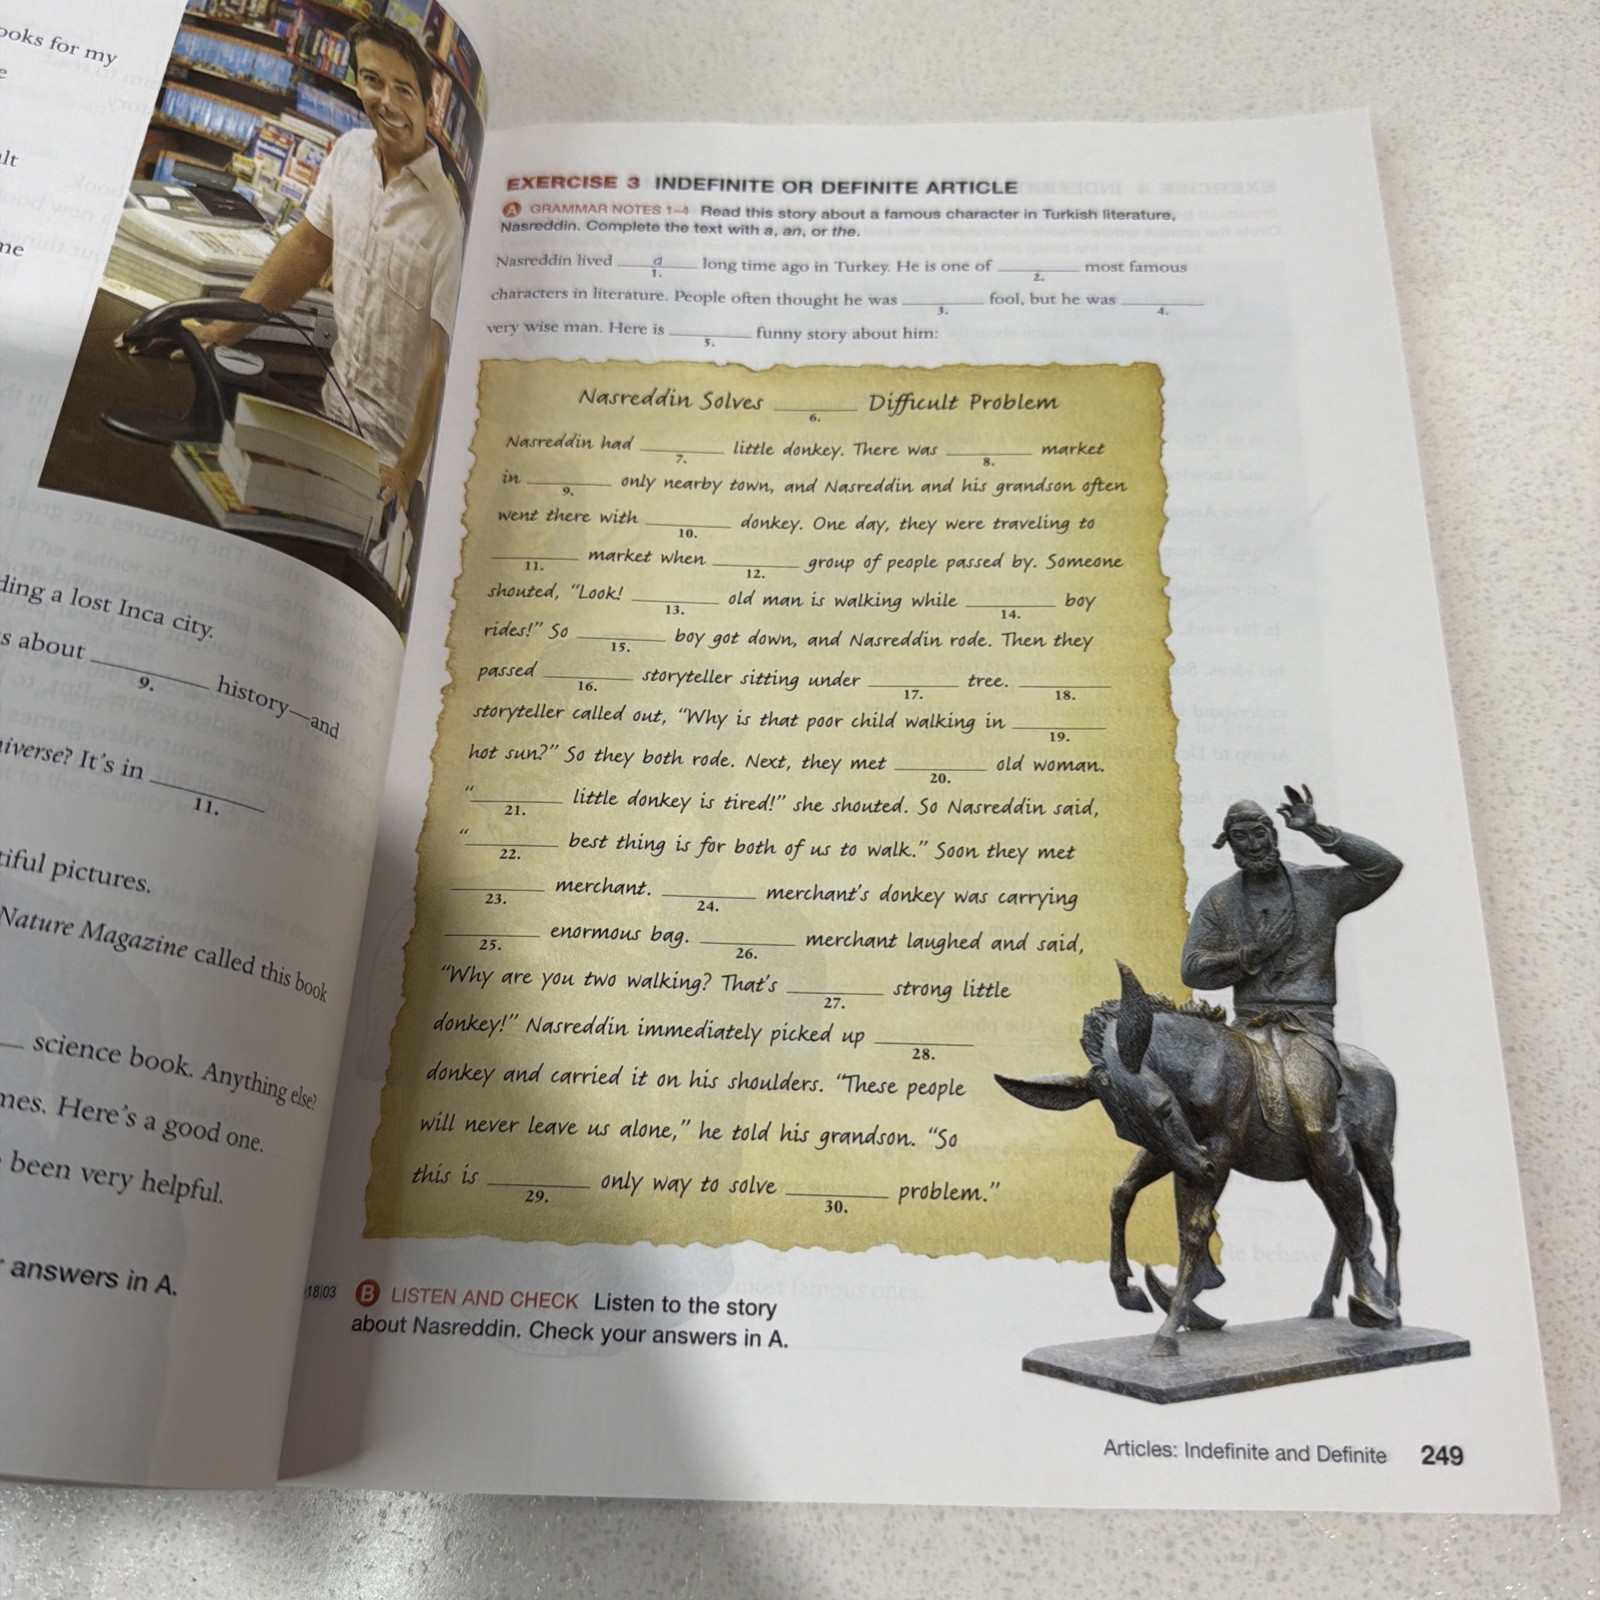 ooks for my
e
alt
me
ding a lost Inca city.
s about ______ history—and
9.
niverse? It's in ______
11.
tiful pictures.
Nature Magazine called this book
___ science book. Anything else?
mes. Here's a good one.
been very helpful.
r answers in A.
EXERCISE 3 INDEFINITE OR DEFINITE ARTICLE
A GRAMMAR NOTES 1–4 Read this story about a famous character in Turkish literature,
Nasreddin. Complete the text with a, an, or the.
Nasreddin lived ___a___ long time ago in Turkey. He is one of ______ most famous
1. 2.
characters in literature. People often thought he was ______ fool, but he was ______
3. 4.
very wise man. Here is ______ funny story about him:
5.
Nasreddin Solves ______ Difficult Problem
6.
Nasreddin had ______ little donkey. There was ______ market
7. 8.
in ______ only nearby town, and Nasreddin and his grandson often
9.
went there with ______ donkey. One day, they were traveling to
10.
______ market when ______ group of people passed by. Someone
11. 12.
shouted, "Look! ______ old man is walking while ______ boy
13. 14.
rides!" So ______ boy got down, and Nasreddin rode. Then they
15.
passed ______ storyteller sitting under ______ tree. ______
16. 17. 18.
storyteller called out, "Why is that poor child walking in ______
19.
hot sun?" So they both rode. Next, they met ______ old woman.
20.
"______ little donkey is tired!" she shouted. So Nasreddin said,
21.
"______ best thing is for both of us to walk." Soon they met
22.
______ merchant. ______ merchant's donkey was carrying
23. 24.
______ enormous bag. ______ merchant laughed and said,
25. 26.
"Why are you two walking? That's ______ strong little
27.
donkey!" Nasreddin immediately picked up ______
28.
donkey and carried it on his shoulders. "These people
will never leave us alone," he told his grandson. "So
this is ______ only way to solve ______ problem."
29. 30.
18|03 B LISTEN AND CHECK Listen to the story
about Nasreddin. Check your answers in A.
Articles: Indefinite and Definite 249